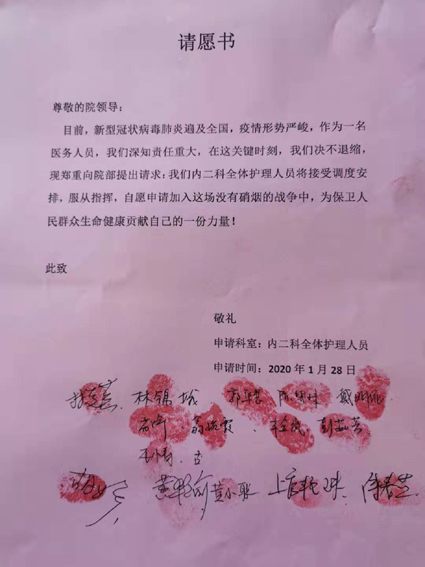 请愿书
尊敬的院领导：
目前，新型冠状病毒肺炎遍及全国，疫情形势严峻，作为一名
医务人员，我们深知责任重大，在这关键时刻，我们决不退缩，
现郑重向院部提出请求：我们内二科全体护理人员将接受调度安
排，服从指挥，自愿申请加入这场没有硝烟的战争中，为保卫人
民群众生命健康贡献自己的一份力量！
此致
敬礼
申请科室：内二科全体护理人员
申请时间：2020 年 1 月 28 日
林锦